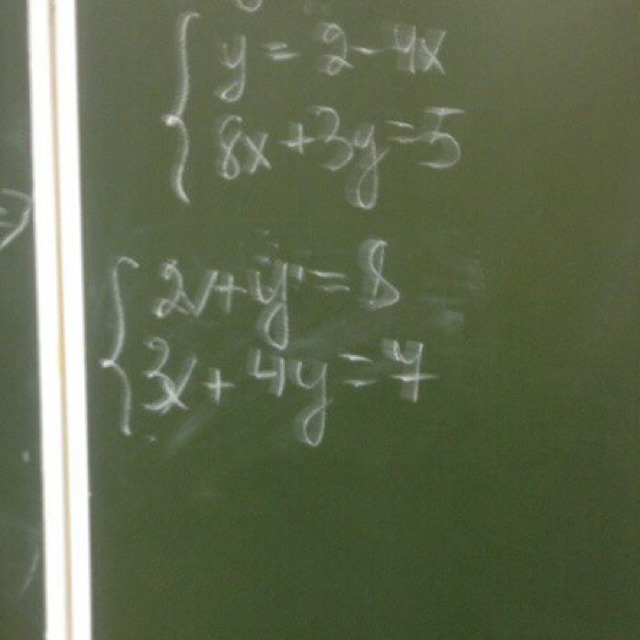 y = 2 - 4x
8x + 3y = 5
2x + y = 8
3x + 4y = 7